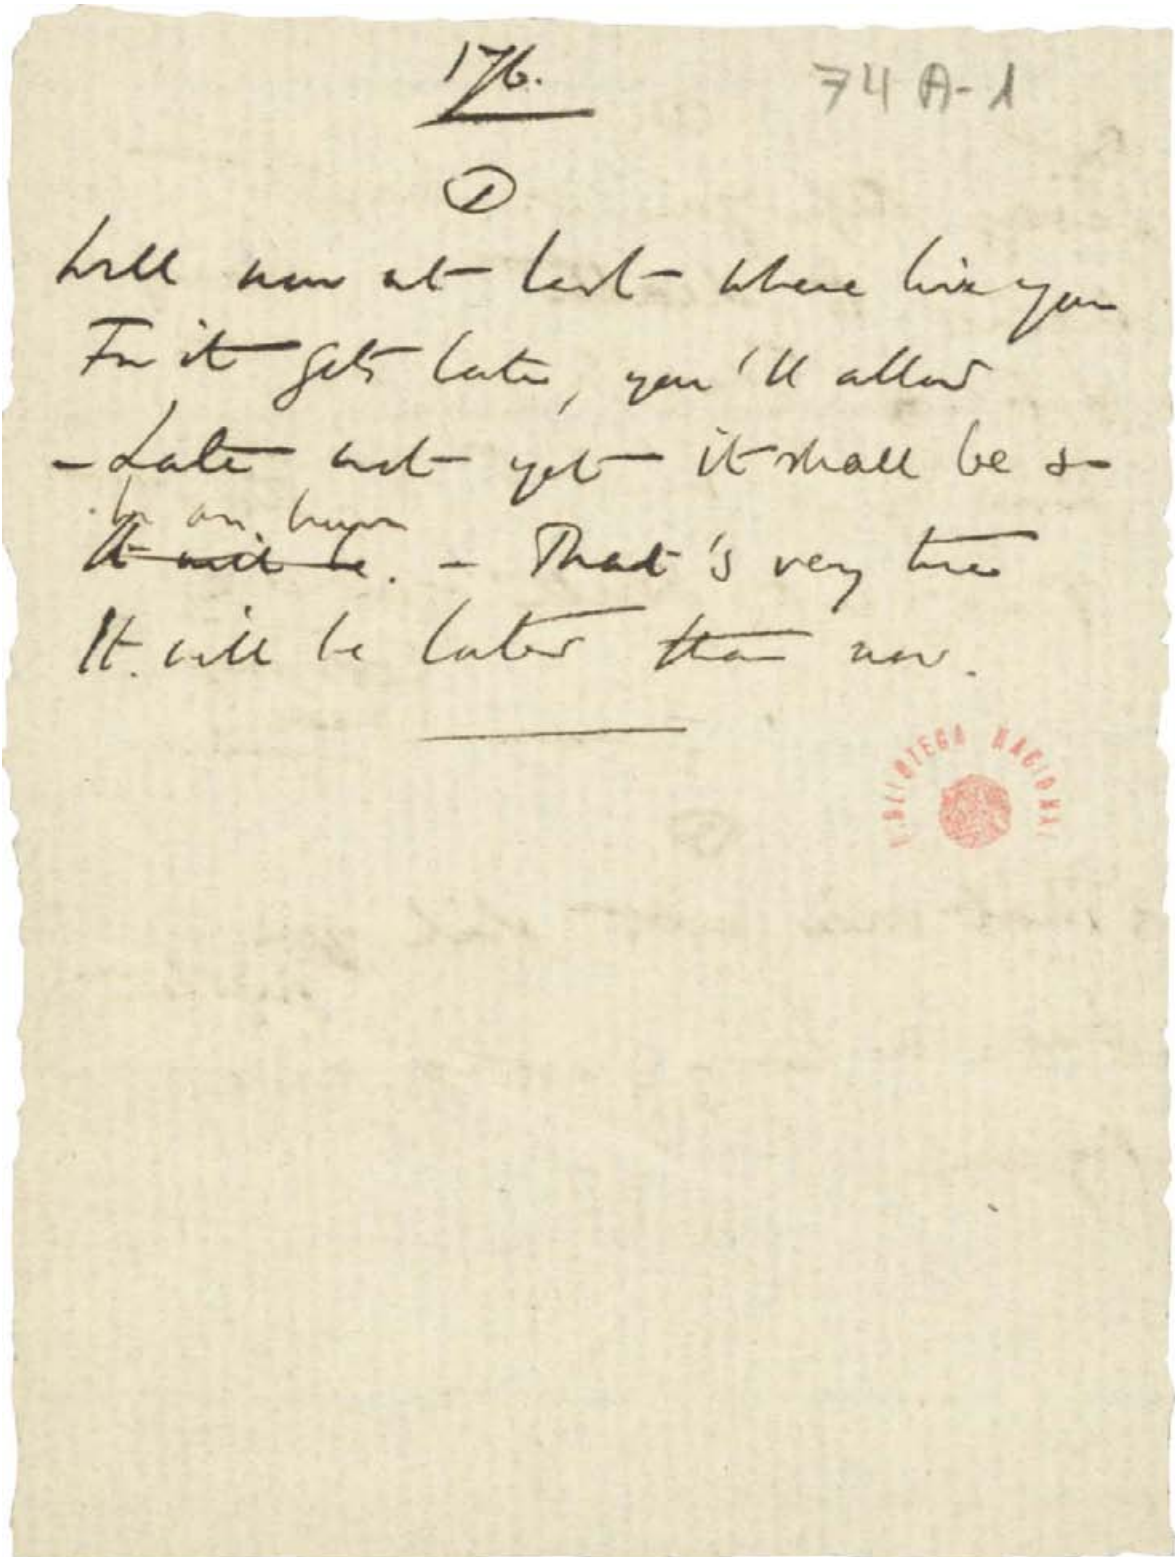 176.
74 A-1
1
Well now at last where live you
For it gets late, you'll allow
- Late not yet it shall be so
In an hour
It will be. - That's very true
It will be later than now.
BIBLIOTECA NACIONAL